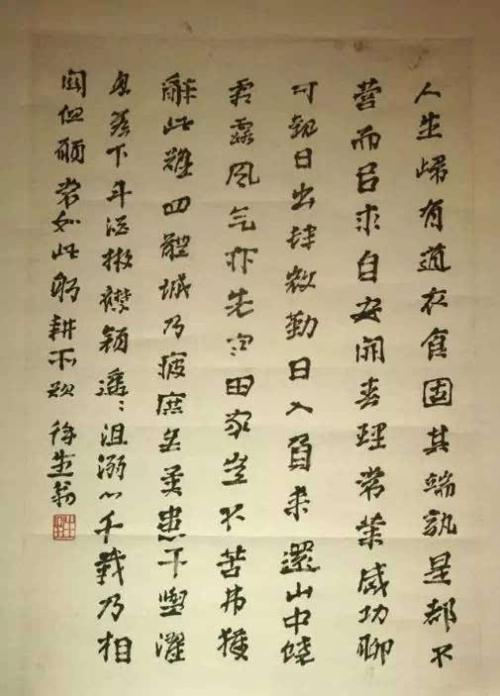 人生歸有道衣食固其端孰是都不
營而㠯求自安開春理常業歲功聊
可觀日出肆微勤日入負耒還山中饒
霜露風气亦先寒田家豈不苦弗獲
辭此難四體誠乃疲庶无異患干盥濯
息簷下斗酒散襟顏遙〻沮溺心千載乃相
關但願常如此躬耕不歎 徐生翁